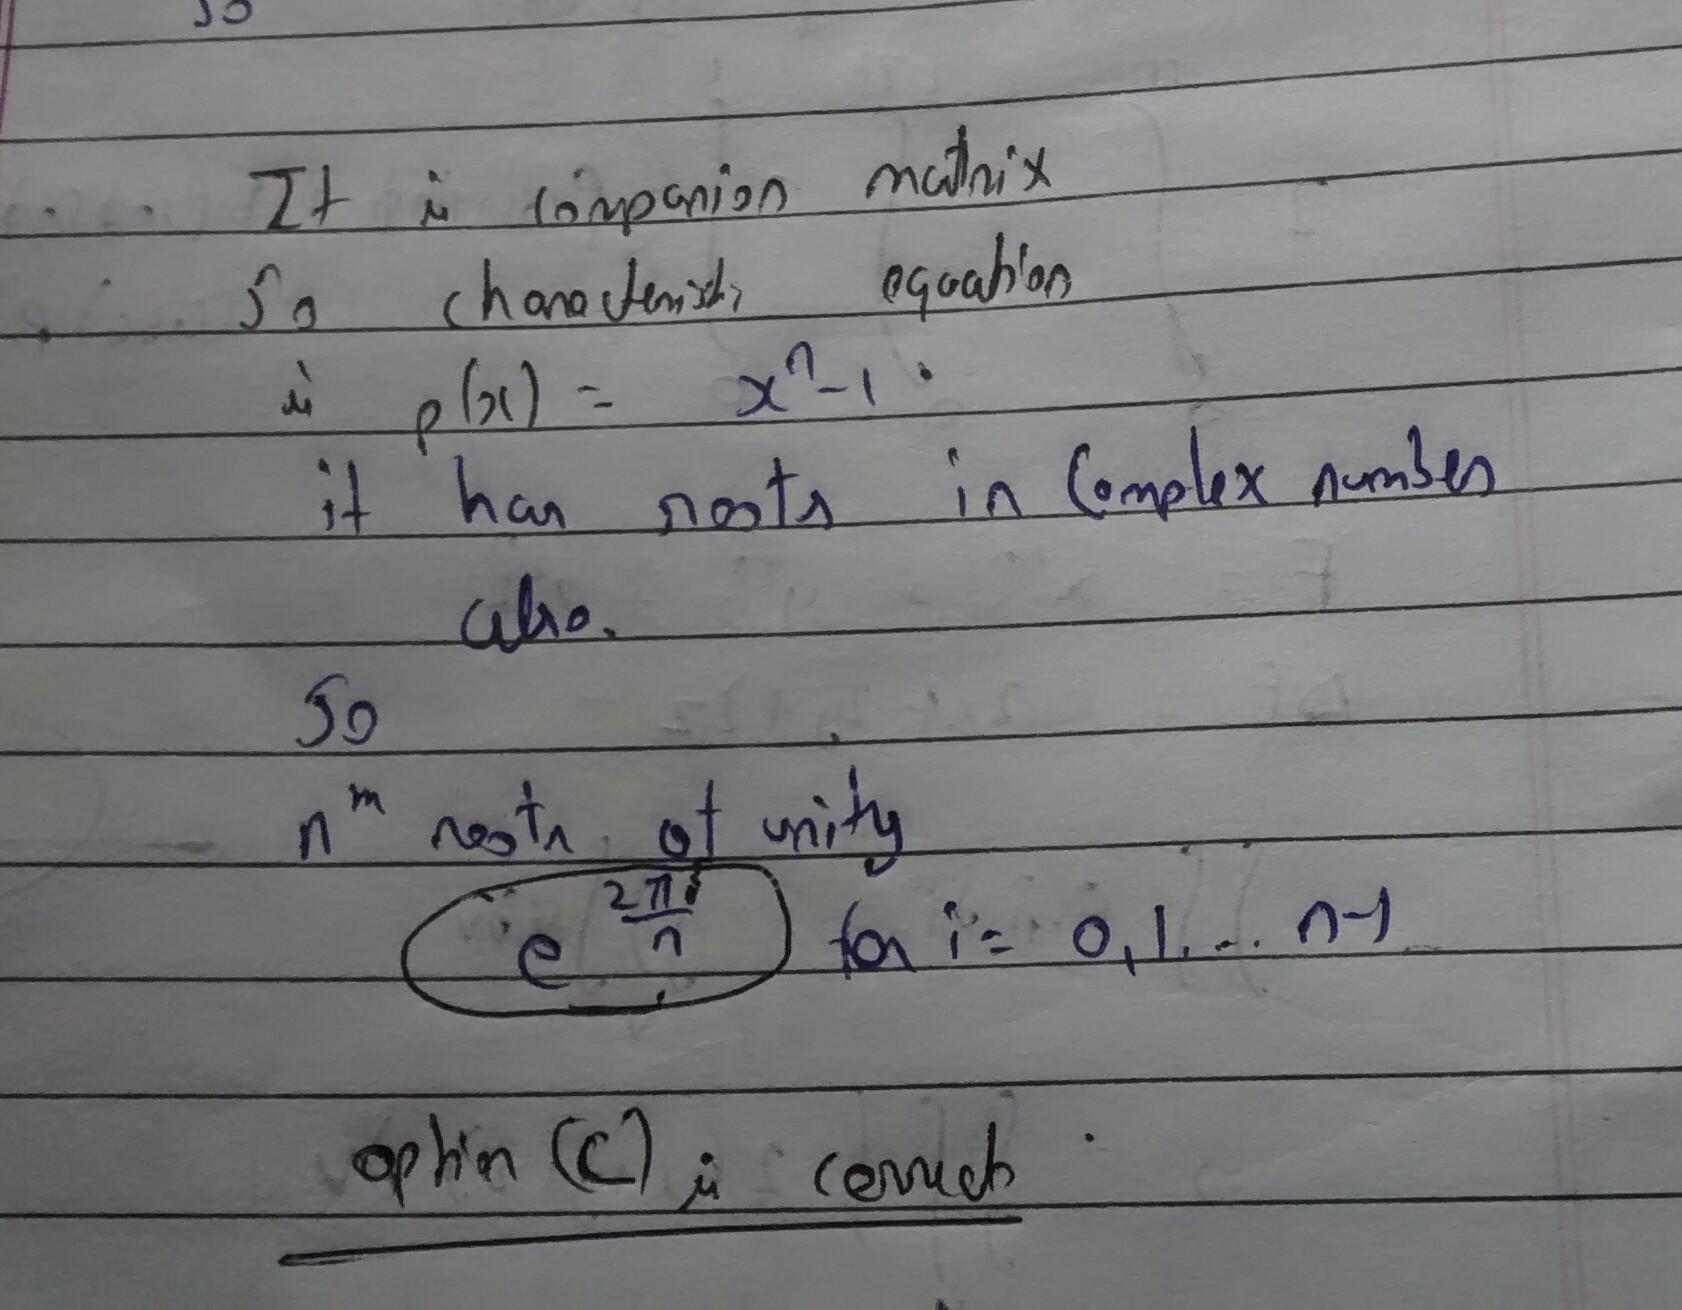 So
It is companion matrix
So characteristic equation
is p(x) = x^n - 1 .
it has roots in Complex number
also.
So
n^th roots of unity
e^(2πi/n) for i = 0, 1, ... n-1
option (C) is correct